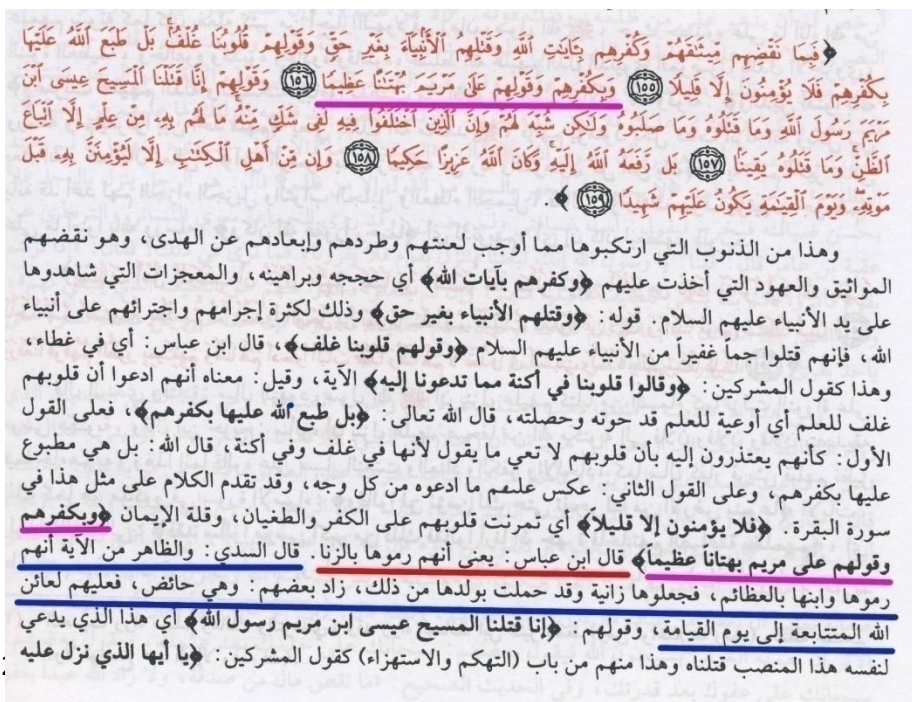 ﴿فَبِمَا نَقْضِهِم مِّيثَٰقَهُمْ وَكُفْرِهِم بِـَٔايَٰتِ ٱللَّهِ وَقَتْلِهِمُ ٱلْأَنۢبِيَآءَ بِغَيْرِ حَقٍّ وَقَوْلِهِمْ قُلُوبُنَا غُلْفٌۢ بَلْ طَبَعَ ٱللَّهُ عَلَيْهَا
بِكُفْرِهِمْ فَلَا يُؤْمِنُونَ إِلَّا قَلِيلًا ﴿١٥٥﴾ وَبِكُفْرِهِمْ وَقَوْلِهِمْ عَلَىٰ مَرْيَمَ بُهْتَٰنًا عَظِيمًا ﴿١٥٦﴾ وَقَوْلِهِمْ إِنَّا قَتَلْنَا ٱلْمَسِيحَ عِيسَى ٱبْنَ
مَرْيَمَ رَسُولَ ٱللَّهِ وَمَا قَتَلُوهُ وَمَا صَلَبُوهُ وَلَٰكِن شُبِّهَ لَهُمْ وَإِنَّ ٱلَّذِينَ ٱخْتَلَفُوا۟ فِيهِ لَفِى شَكٍّ مِّنْهُ مَا لَهُم بِهِۦ مِنْ عِلْمٍ إِلَّا ٱتِّبَاعَ
ٱلظَّنِّ وَمَا قَتَلُوهُ يَقِينًۢا ﴿١٥٧﴾ بَل رَّفَعَهُ ٱللَّهُ إِلَيْهِ وَكَانَ ٱللَّهُ عَزِيزًا حَكِيمًا ﴿١٥٨﴾ وَإِن مِّنْ أَهْلِ ٱلْكِتَٰبِ إِلَّا لَيُؤْمِنَنَّ بِهِۦ قَبْلَ
مَوْتِهِۦ وَيَوْمَ ٱلْقِيَٰمَةِ يَكُونُ عَلَيْهِمْ شَهِيدًا ﴿١٥٩﴾﴾.
وهذا من الذنوب التي ارتكبوها مما أوجب لعنتهم وطردهم وإبعادهم عن الهدى، وهو نقضهم
المواثيق والعهود التي أخذت عليهم ﴿وكفرهم بآيات الله﴾ أي حججه وبراهينه، والمعجزات التي شاهدوها
على يد الأنبياء عليهم السلام. قوله: ﴿وقتلهم الأنبياء بغير حق﴾ وذلك لكثرة إجرامهم واجترائهم على أنبياء
الله، فإنهم قتلوا جماً غفيراً من الأنبياء عليهم السلام ﴿وقولهم قلوبنا غلف﴾، قال ابن عباس: أي في غطاء،
وهذا كقول المشركين: ﴿وقالوا قلوبنا في أكنة مما تدعونا إليه﴾ الآية، وقيل: معناه أنهم ادعوا أن قلوبهم
غلف للعلم أي أوعية للعلم قد حوته وحصلته، قال الله تعالى: ﴿بل طبع الله عليها بكفرهم﴾، فعلى القول
الأول: كأنهم يعتذرون إليه بأن قلوبهم لا تعي ما يقول لأنها في غلف وفي أكنة، قال الله: بل هي مطبوع
عليها بكفرهم، وعلى القول الثاني: عكس عليهم ما ادعوه من كل وجه، وقد تقدم الكلام على مثل هذا في
سورة البقرة. ﴿فلا يؤمنون إلا قليلاً﴾ أي تمرنت قلوبهم على الكفر والطغيان، وقلة الإيمان ﴿وبكفرهم
وقولهم على مريم بهتاناً عظيماً﴾ قال ابن عباس: يعني أنهم رموها بالزنا. قال السدي: والظاهر من الآية أنهم
رموها وابنها بالعظائم، فجعلوها زانية وقد حملت بولدها من ذلك، زاد بعضهم: وهي حائض، فعليهم لعائن
الله المتتابعة إلى يوم القيامة، وقولهم: ﴿إنا قتلنا المسيح عيسى ابن مريم رسول الله﴾ أي هذا الذي يدعي
لنفسه هذا المنصب قتلناه وهذا منهم من باب (التهكم والاستهزاء) كقول المشركين: ﴿يا أيها الذي نزل عليه